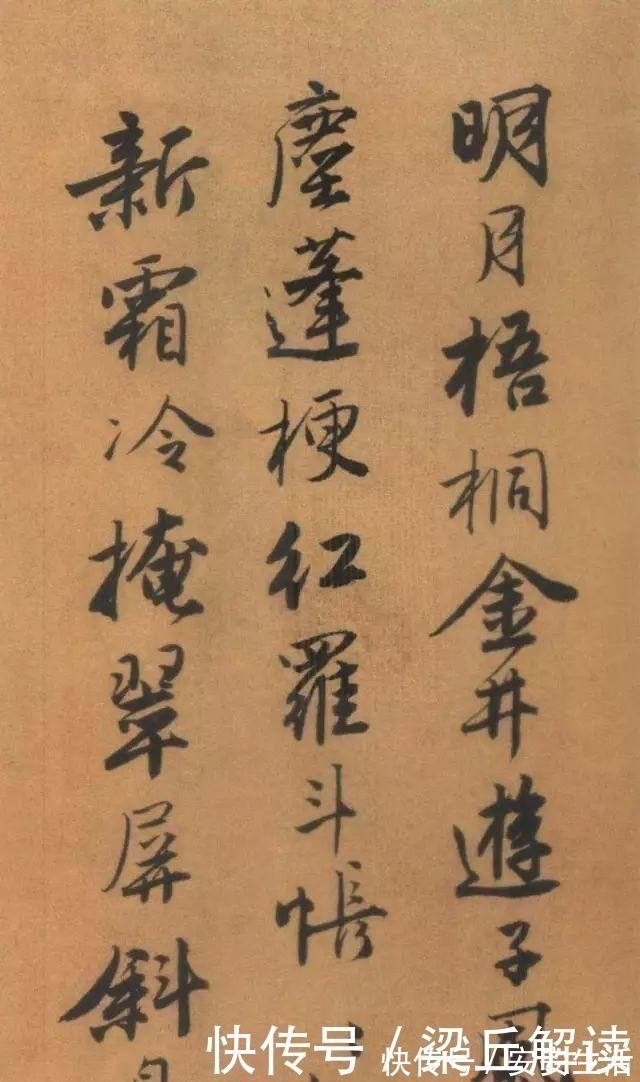 明月梧桐金井遊子
塵蓬梗紅羅斗帳
新霜冷掩翠屏斜
快传号 / 梁丘解读
快传号 / 安安生活